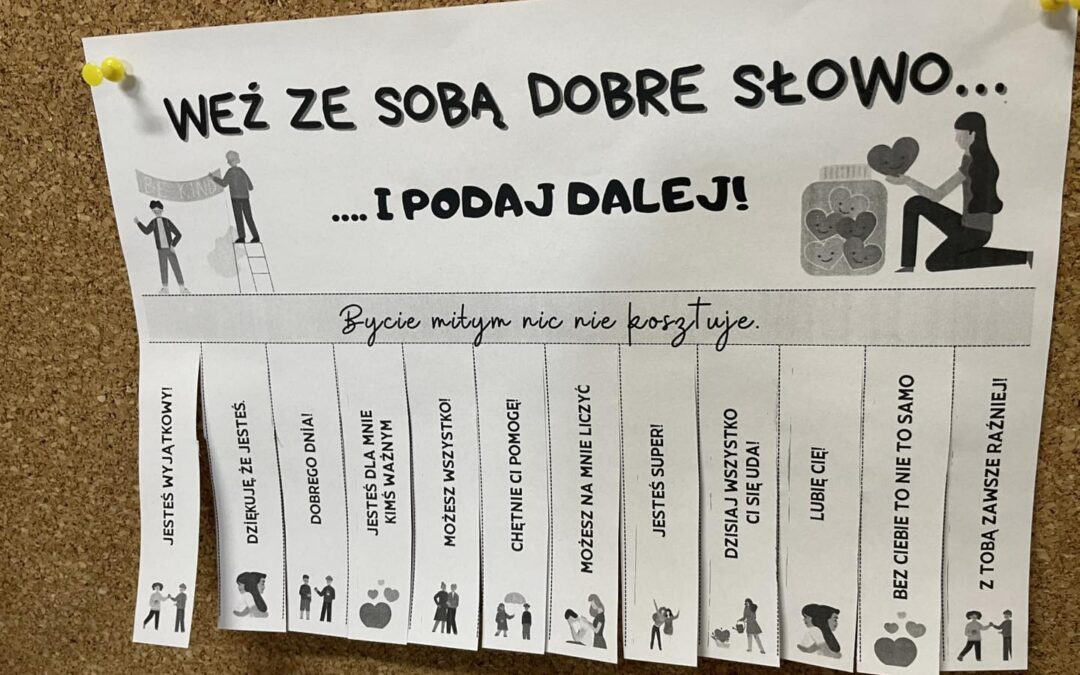 WEŹ ZE SOBĄ DOBRE SŁOWO...
BE KIND
.... I PODAJ DALEJ!
Bycie miłym nic nie kosztuje.
JESTEŚ WYJĄTKOWY!
DZIĘKUJĘ ŻE JESTEŚ.
DOBREGO DNIA!
JESTEŚ DLA MNIE
KIMŚ WAŻNYM
MOŻESZ WSZYSTKO!
CHĘTNIE CI POMOGĘ!
MOŻESZ NA MNIE LICZYĆ
JESTEŚ SUPER!
DZISIAJ WSZYSTKO
CI SIĘ UDA!
LUBIĘ CIĘ!
BEZ CIEBIE TO NIE TO SAMO
Z TOBĄ ZAWSZE RAŹNIEJ!